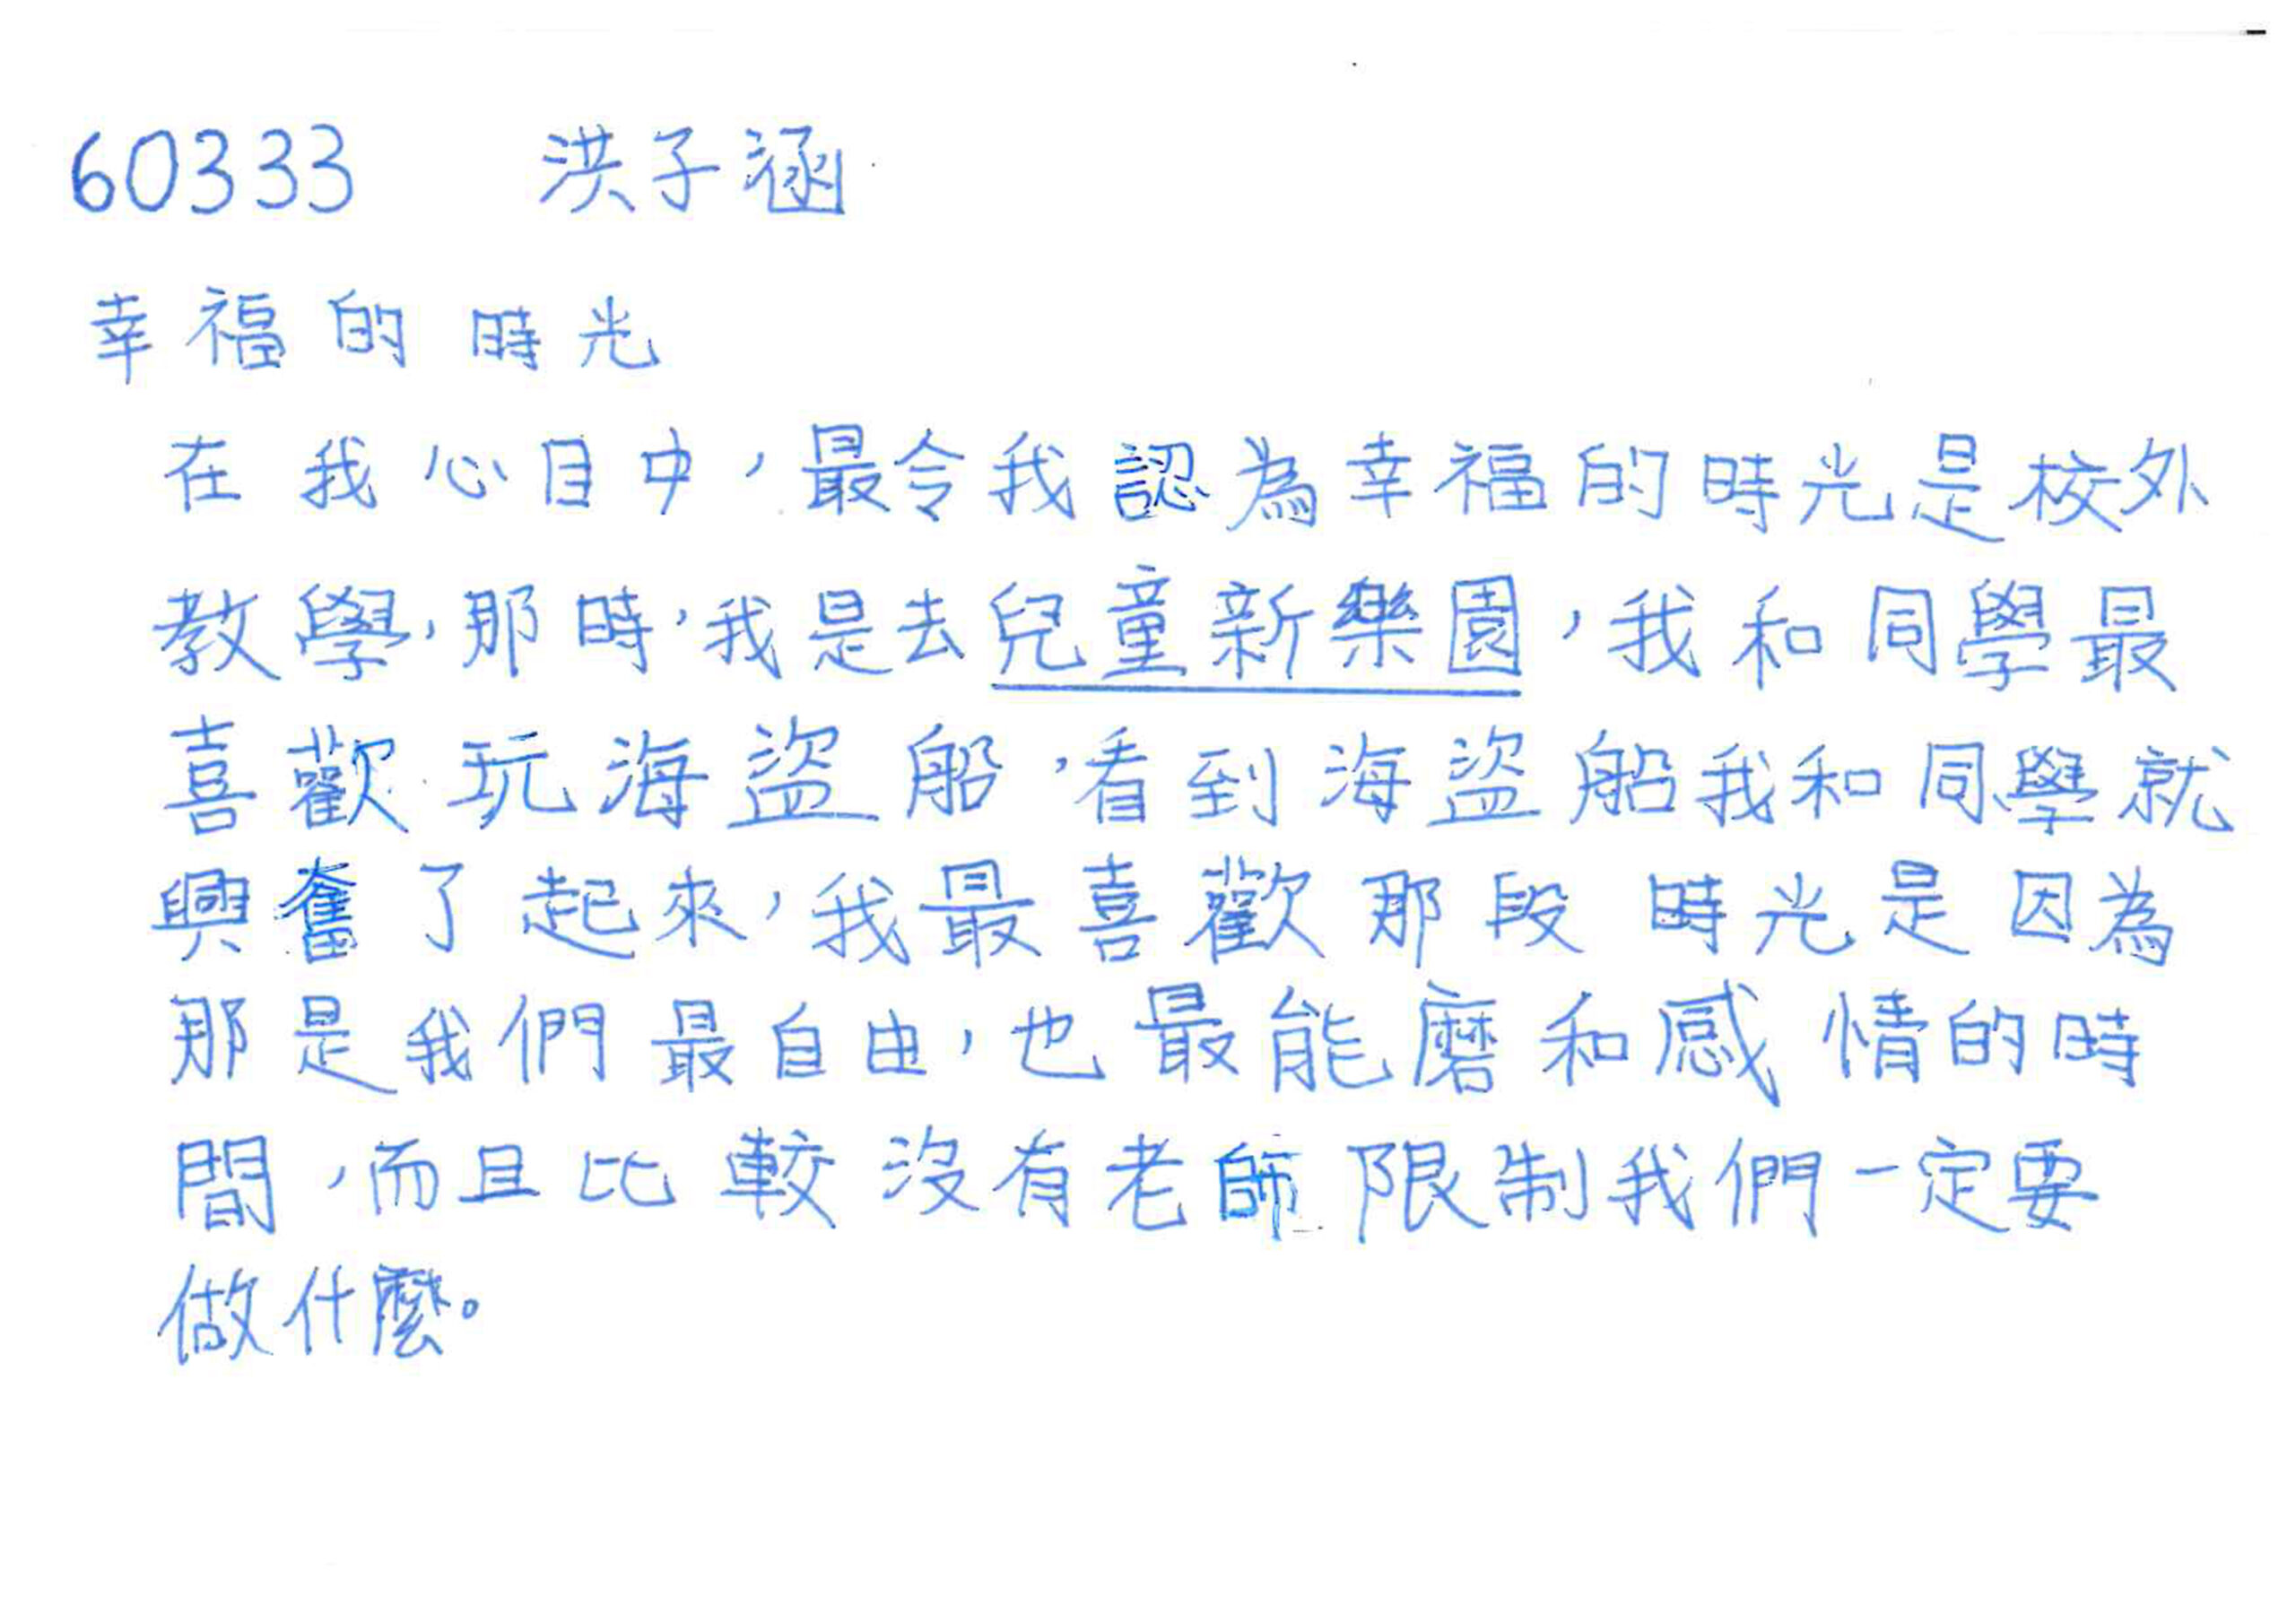 60333 洪子涵
幸福的時光
在我心目中，最令我認為幸福的時光是校外
教學，那時，我是去兒童新樂園，我和同學最
喜歡玩海盜船，看到海盜船我和同學就
興奮了起來，我最喜歡那段時光是因為
那是我們最自由，也最能磨和感情的時
間，而且比較沒有老師限制我們一定要
做什麼。